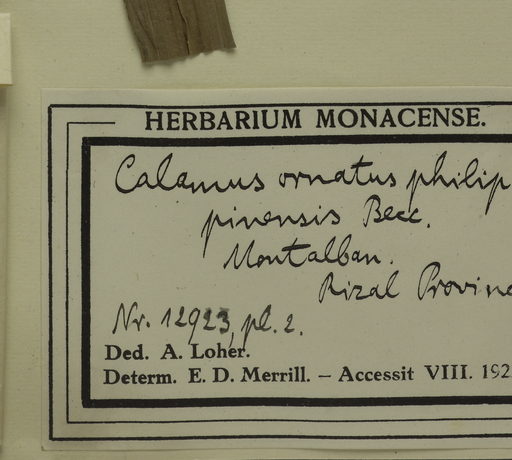 HERBARIUM MONACENSE.
Calamus ornatus philip
pinensis Becc.
Montalban.
Rizal Provinc
Nr. 12923, pl. 2.
Ded. A. Loher.
Determ. E. D. Merrill. – Accessit VIII. 192